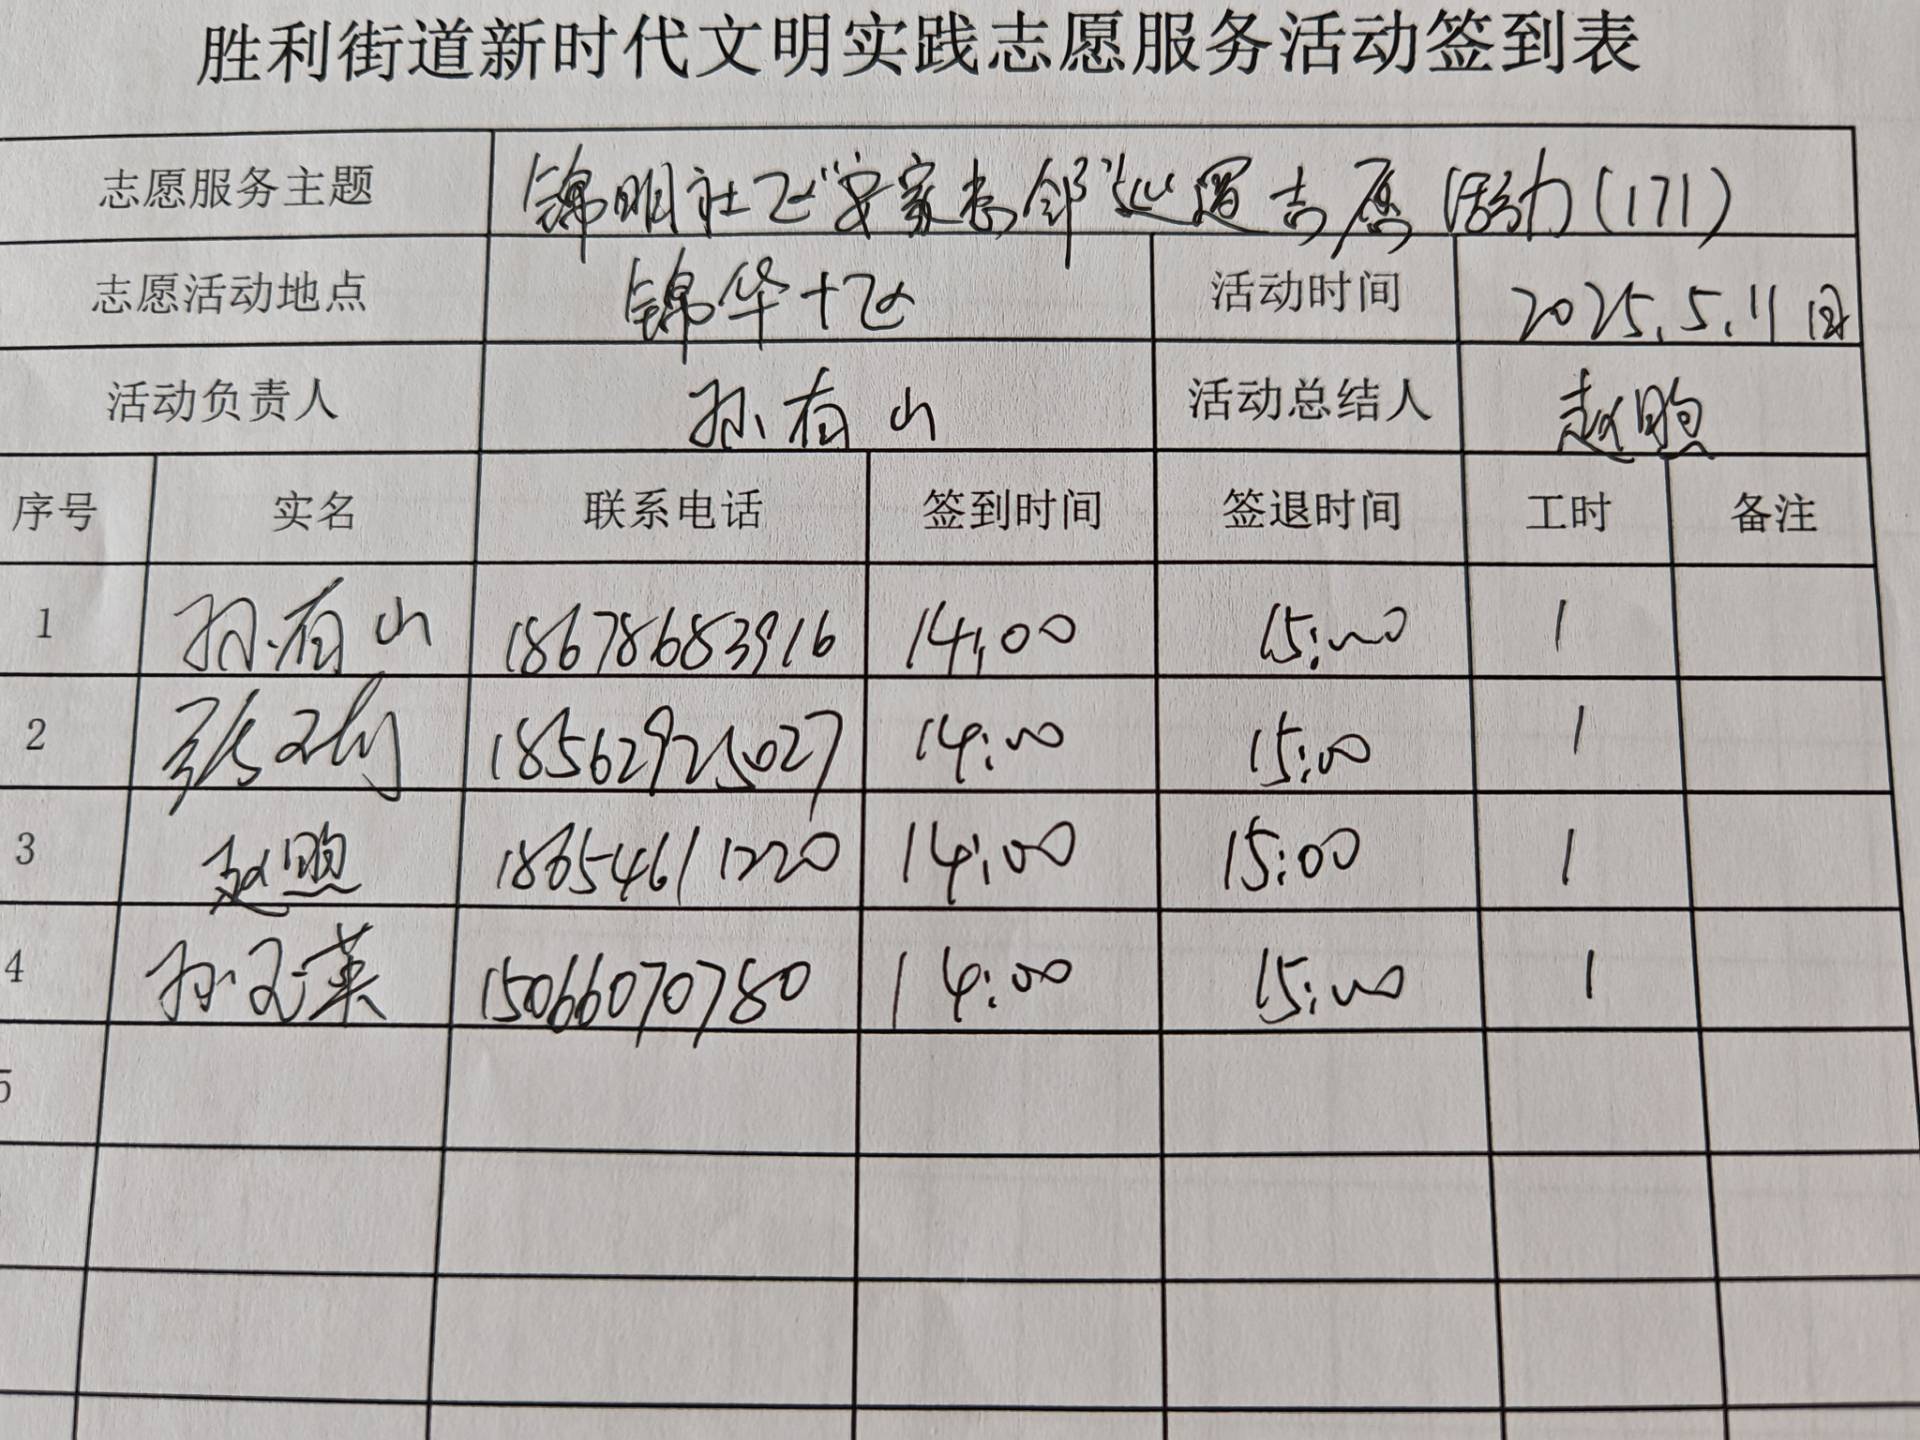 胜利街道新时代文明实践志愿服务活动签到表
志愿服务主题 锦明社区"安家守邻"巡逻志愿活动(171)
志愿活动地点 锦华十区 活动时间 2025.5.11日
活动负责人 孙有山 活动总结人 赵煦
序号 实名 联系电话 签到时间 签退时间 工时 备注
1 孙有山 18678683916 14:00 15:00 1
2 张 18562925027 14:00 15:00 1
3 赵煦 18654611220 14:00 15:00 1
4 孙玉英 15066070780 14:00 15:00 1
5